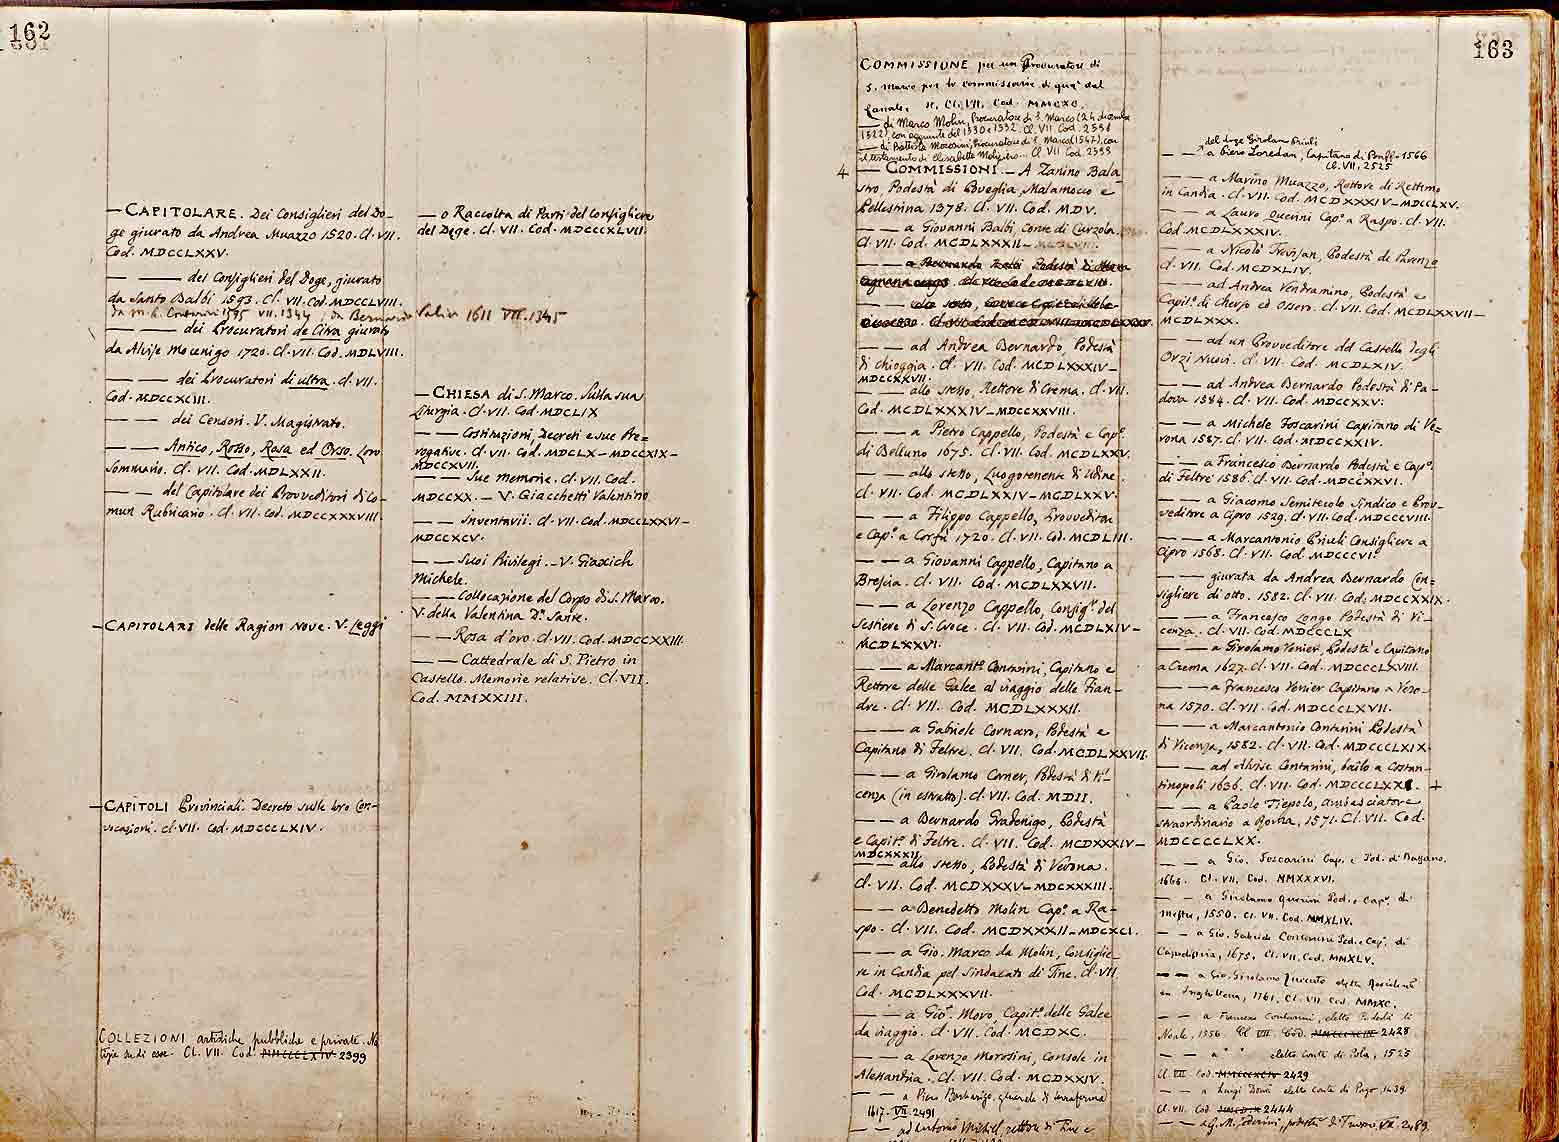 162
— CAPITOLARE. Dei Consiglieri del Do-
ge giurato da Andrea Muazzo 1520. Cl. VII.
Cod. MDCCLXXV.
— — dei Consiglieri del Doge, giurato
da Santo Balbi 1593. Cl. VII. Cod. MDCCLVIII.
1595 VII. 1344, da Bernardo
— — dei Procuratori de Citra giurato
da Alvise Mocenigo 1720. Cl. VII. Cod. MDLVIII.
— — dei Procuratori di ultra. Cl. VII.
Cod. MDCCXCIII.
— — dei Censori. V. Magistrato.
— — Antico, Rosso, Rosa ed Orso. Loro
Sommario. Cl. VII. Cod. MDLXXII.
— — del Capitolare dei Provveditori di Co-
mun Rubricario. Cl. VII. Cod. MDCCXXXVIII.
— CAPITOLARI delle Ragion nove. V. Leggi
— CAPITOLI Provinciali. Decreto sulle loro Con-
vocazioni. Cl. VII. Cod. MDCCCLXIV.
COLLEZIONI artistiche pubbliche e private. No
tizie su di esse. Cl. VII. Cod. MMCCCLXIV 2399
— o Raccolta di Parti del Consigliere
del Doge. Cl. VII. Cod. MDCCCXLVII.
1611 VII. 1345
— CHIESA di S. Marco. Sulla sua
Liturgia. Cl. VII. Cod. MDCLIX
— — Costituzioni, Decreti e sue Pre=
rogative. Cl. VII. Cod. MDCLX – MDCCXIX –
MDCCXVII.
— — Sue memorie. Cl. VII. Cod.
MDCCXX. – V. Giacchetti Valentino
— — Inventarii. Cl. VII. Cod. MDCCLXXVI –
MDCCXCV.
— — Suoi Privilegi. – V. Giaxich
Michele.
— — Collocazione del Corpo di S. Marco.
V. della Valentina Dn. Sante.
— — Rosa d'oro. Cl. VII. Cod. MDCCXXIII.
— — Cattedrale di S. Pietro in
Castello. Memorie relative. Cl. VII.
Cod. MMXXIII.
163
COMMISSIONE per un Procuratore di
S. Marco per le commissarie di quà dal
Canale. Cl. VII. Cod. MMCXC.
— di Marco Molin, Procuratore di S. Marco (24 dicembre
1522), con aggiunte del 1530 e 1532. Cl. VII Cod. 2558
— di Battista Morosini, Procuratore di S. Marco (1547), con
il testamento di Elisabetta Cl. VII Cod. 2559
4 — COMMISSIONI. – A Zanino Bala-
stro, Podestà di Poveglia, Malamocco e
Pellestrina 1378. Cl. VII. Cod. MDV.
— — a Giovanni Balbi, Conte di Curzola.
Cl. VII. Cod. MCDLXXXII –
— — a Bernardo Balbi Podestà di
— — ad Andrea Bernardo, Podestà
di Chioggia. Cl. VII. Cod. MCDLXXXIV –
MDCCXXVII.
— — allo stesso, Rettore di Crema. Cl. VII.
Cod. MCDLXXXIV – MDCCXXVIII.
— — a Pietro Cappello, Podestà e Cap°.
di Belluno 1675. Cl. VII. Cod. MCDLXXV.
— — allo stesso, Luogotenente di Udine.
Cl. VII. Cod. MCDLXXIV – MCDLXXV.
— — a Filippo Cappello, Provveditor
e Cap°. a Corfù 1720. Cl. VII. Cod. MCDLIII.
— — a Giovanni Cappello, Capitano a
Brescia. Cl. VII. Cod. MCDLXXVII.
— — a Lorenzo Cappello, Consigr. del
Sestiere di S. Croce. Cl. VII. Cod. MCDLXIV –
MCDLXXVI.
— — a Marcant°. Contarini, Capitano e
Rettore delle Galee al viaggio delle Fian-
dre. Cl. VII. Cod. MCDLXXXII.
— — a Gabriele Cornaro, Podestà e
Capitano di Feltre. Cl. VII. Cod. MCDLXXVII.
— — a Girolamo Corner, Podestà di Vi-
cenza (in estratto). Cl. VII. Cod. MDII.
— — a Bernardo Gradenigo, Podestà
e Capit°. di Feltre. Cl. VII. Cod. MCDXXXIV –
MDCXXXII
— — allo stesso, Podestà di Verona.
Cl. VII. Cod. MCDXXXV – MDCXXXIII.
— — a Benedetto Molin Cap°. a Ra-
spo. Cl. VII. Cod. MCDXXXII – MDCXCI.
— — a Gio. Marco da Molin, Consiglie-
re in Candia pel Sindacato di Tine. Cl. VII.
Cod. MCDLXXXVII.
— — a Gio. Moro, Capit°. delle Galee
da viaggio. Cl. VII. Cod. MCDXC.
— — a Lorenzo Morosini, Console in
Alessandria. Cl. VII. Cod. MCDXXIV.
— — a Piero Barbarigo, di terraferma
1617. VII. 2491
— — ad Antonio Michiel, rettore di Tine e
del doge Girolamo Priuli
— — a Piero Loredan, Capitano di 1566
Cl. VII. 2525
— — a Marino Muazzo, Rettore di Rettimo
in Candia. Cl. VII. Cod. MCDXXXIV – MDCCLXV.
— — a Lauro Querini Cap°. a Raspo. Cl. VII.
Cod. MCDLXXXIV.
— — a Nicolò Trevisan, Podestà di Parenzo
Cl. VII. Cod. MCDXLIV.
— — ad Andrea Vendramino, Podestà e
Capit°. di Cherso ed Ossero. Cl. VII. Cod. MCDLXXXVII –
MCDLXXX.
— — ad un Provveditore del Castello degli
Orzi Nuovi. Cl. VII. Cod. MCDLXIV.
— — ad Andrea Bernardo Podestà di Pa-
dova 1584. Cl. VII. Cod. MDCCXXV.
— — a Michele Foscarini Capitano di Ve=
rona 1587. Cl. VII. Cod. MDCCXXIV.
— — a Francesco Bernardo Podestà e Cap°.
di Feltre 1586. Cl. VII. Cod. MDCCXXVI.
— — a Giacomo Semitecolo Sindico e Prov-
veditore a Cipro 1529. Cl. VII. Cod. MDCCCVIII.
— — a Marcantonio Priuli Consigliere a
Cipro 1568. Cl. VII. Cod. MDCCCVI.
— — giurata da Andrea Bernardo Con=
sigliere di otto. 1582. Cl. VII. Cod. MDCCXXIX.
— — a Francesco Longo Podestà di Vi-
cenza. Cl. VII. Cod. MDCCCLX
— — a Girolamo Venier, Podestà e Capitano
a Crema 1627. Cl. VII. Cod. MDCCCLXVIII.
— — a Francesco Venier Capitano a Vero-
na 1570. Cl. VII. Cod. MDCCCLXVII.
— — a Marcantonio Contarini Podestà
di Vicenza, 1582. Cl. VII. Cod. MDCCCLXIX.
— — ad Alvise Contarini, bailo a Costan-
tinopoli 1636. Cl. VII. Cod. MDCCCLXX. +
— — a Paolo Tiepolo, ambasciatore
straordinario a Roma, 1571. Cl. VII. Cod.
MDCCCCLXX.
— — a Gio. Foscarini Cap. e Pod. di Bassano.
1666. Cl. VII. Cod. MMXXXVI.
— — a Girolamo Querini Pod. e Cap°. di
Mestre, 1550. Cl. VII. Cod. MMXLIV.
— — a Gio. Gabriele Contarini Pod. e Cap°. di
Capodistria, 1675. Cl. VII. Cod. MMXLV.
— — a Gio. Girolamo Zuccato eletto Residente
in Inghilterra, 1761. Cl. VII Cod. MMXC.
— — a Francesco Contarini, eletto Podestà di
Noale, 1556. Cl. VII. Cod. 2428
— — a " " eletto Conte di Pola, 1525
Cl. VII. Cod. 2429
— — a Luigi Donà eletto conte di Pago, 1439.
Cl. VII. Cod. 2444
— — a G. M. podestà di Treviso, VII. 2489